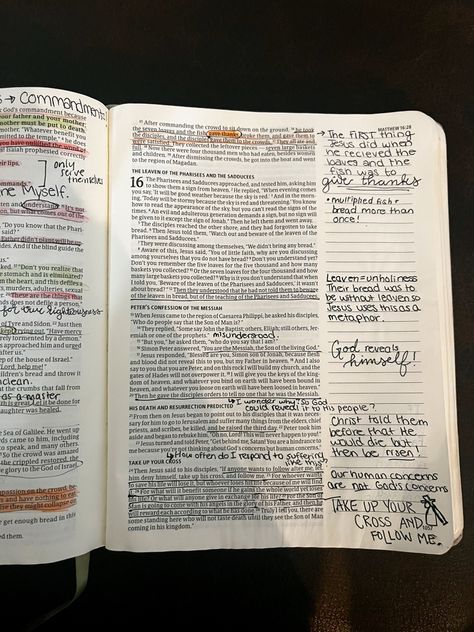 s → COMMANDments
God's commandment because
your father and your mother;
mother must be put to death.
mother, "Whatever benefit you
mitted to the temple,"
you have nullified the word
Isaiah prophesied correctly
eir lips.
mmands.
only
serve
themselves
the Myself.
understand:
on, but what comes out of the
"Do you know that the Phari-
Father didn't plant will be
"Don't you realize that
stomach and is eliminated?
the heart, and this defiles a
murders, adulteries, sexual
These are the things
ands does not defile a person."
for true righteousness
of Tyre and Sidon. Just then
crying out, "Have mercy
verely tormented by a demon."
oached him and urged
after us."
ep of the house of Israel."
Lord, help me!"
children's bread and throw it
unclean.
eat the crumbs that fall from
as a master
th is great. Let it be done for
aughter was healed.
Sea of Galilee. He went up
rowds came to him, including
o speak, and many others.
So the crowd was amazed
the crippled restored, the
e glory to the God of Israel.
mpassion on the crowd, be-
and have nothing to eat.
e they might collapse on
get enough bread in this
MATTHEW 16:28
35 After commanding the crowd to sit down on the ground, 36 he took
the seven loaves and the fish, gave thanks, broke them, and gave them to
the disciples, and the disciples gave them to the crowds. 37 They all ate and
were satisfied. They collected the leftover pieces — seven large baskets
full. 38 Now there were four thousand men who had eaten, besides women
and children. 39 After dismissing the crowds, he got into the boat and went
to the region of Magadan.
THE LEAVEN OF THE PHARISEES AND THE SADDUCEES
16 The Pharisees and Sadducees approached, and tested him, asking him
to show them a sign from heaven. 2 He replied, "When evening comes
you say, 'It will be good weather because the sky is red.' 3 And in the morning,
'Today will be stormy because the sky is red and threatening.' You know
how to read the appearance of the sky, but you can't read the signs of the
times. 4 An evil and adulterous generation demands a sign, but no sign will
be given to it except the sign of Jonah." Then he left them and went away.
5 The disciples reached the other shore, and they had forgotten to take
bread. 6 Then Jesus told them, "Watch out and beware of the leaven of the
Pharisees and Sadducees."
7 They were discussing among themselves, "We didn't bring any bread."
8 Aware of this, Jesus said, "You of little faith, why are you discussing
among yourselves that you do not have bread? 9 Don't you understand yet?
Don't you remember the five loaves for the five thousand and how many
baskets you collected? 10 Or the seven loaves for the four thousand and how
many large baskets you collected? 11 Why is it you don't understand that when
I told you, 'Beware of the leaven of the Pharisees and Sadducees,' it wasn't
about bread?" 12 Then they understood that he had not told them to beware
of the leaven in bread, but of the teaching of the Pharisees and Sadducees.
PETER'S CONFESSION OF THE MESSIAH
13 When Jesus came to the region of Caesarea Philippi, he asked his disciples,
"Who do people say that the Son of Man is?"
14 They replied, "Some say John the Baptist; others, Elijah; still others, Jer-
emiah or one of the prophets." misunderstood.
15 "But you," he asked them, "who do you say that I am?"
16 Simon Peter answered, "You are the Messiah, the Son of the living God."
17 Jesus responded, "Blessed are you, Simon son of Jonah, because flesh
and blood did not reveal this to you, but my Father in heaven. 18 And I also
say to you that you are Peter, and on this rock I will build my church, and the
gates of Hades will not overpower it. 19 I will give you the keys of the king-
dom of heaven, and whatever you bind on earth will have been bound in
heaven, and whatever you loose on earth will have been loosed in heaven."
20 Then he gave the disciples orders to tell no one that he was the Messiah.
↳ I wonder why? So God
could reveal it to his people?
HIS DEATH AND RESURRECTION PREDICTED
21 From then on Jesus began to point out to his disciples that it was neces-
sary for him to go to Jerusalem and suffer many things from the elders, chief
priests, and scribes, be killed, and be raised the third day. 22 Peter took him
aside and began to rebuke him, "Oh no, Lord! This will never happen to you!"
23 Jesus turned and told Peter, "Get behind me, Satan! You are a hindrance to
me because you're not thinking about God's concerns but human concerns."
↳ How often do I respond to suffering
like this?
TAKE UP YOUR CROSS
24 Then Jesus said to his disciples, "If anyone wants to follow after me, let
him deny himself, take up his cross, and follow me. 25 For whoever wants
to save his life will lose it, but whoever loses his life because of me will find
it. 26 For what will it benefit someone if he gains the whole world yet loses
his life? Or what will anyone give in exchange for his life? 27 For the Son of
Man is going to come with his angels in the glory of his Father, and then he
will reward each according to what he has done. 28 Truly I tell you, there are
some standing here who will not taste death until they see the Son of Man
coming in his kingdom."
The FIRST thing
Jesus did when
he recieved the
loaves and the
fish was to
give thanks
• multiplied fish &
bread more than
once!
Leaven = unholiness
Their bread was to
be without leaven so
Jesus uses this as a
metaphor.
God reveals
himself!
Christ told them
before that He
would die, but
then be risen!
Our human concerns
are not God's concerns
TAKE UP YOUR
CROSS AND
FOLLOW ME.